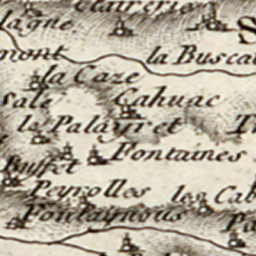 Clairerie
lagne
S
mont
la Buscal
la Caze
Sale
Cahuac
le Palayret
T
Fontaines
Buffet
Peyrolles
les Cab
Fontaynous
Pa